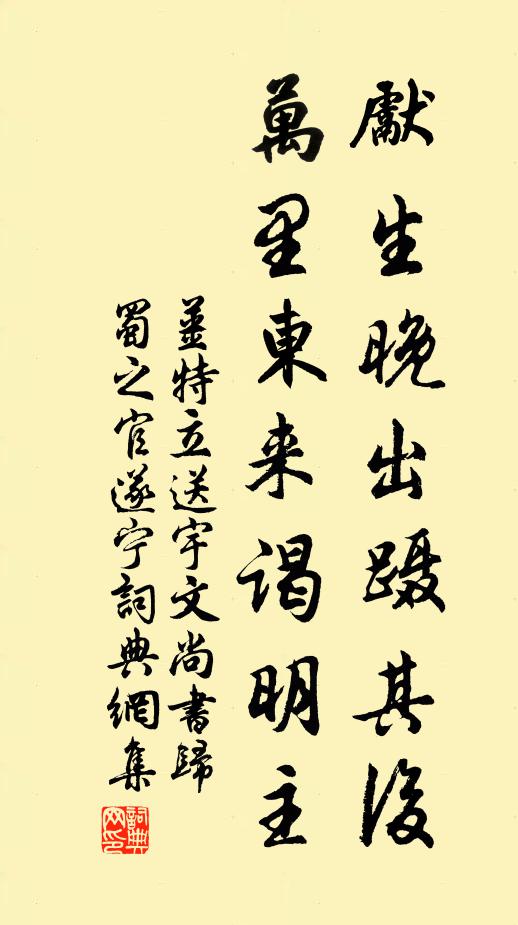 獻生晚出蹑其後
萬里東来谒明主
薑特立送宇文尚書歸
蜀之官遂宁詞典網集
詞典网印